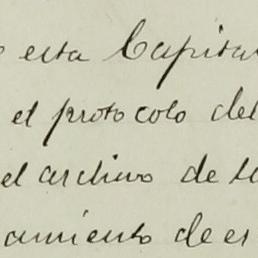 esta Capital
el protocolo del
el archivo de
amiento de es